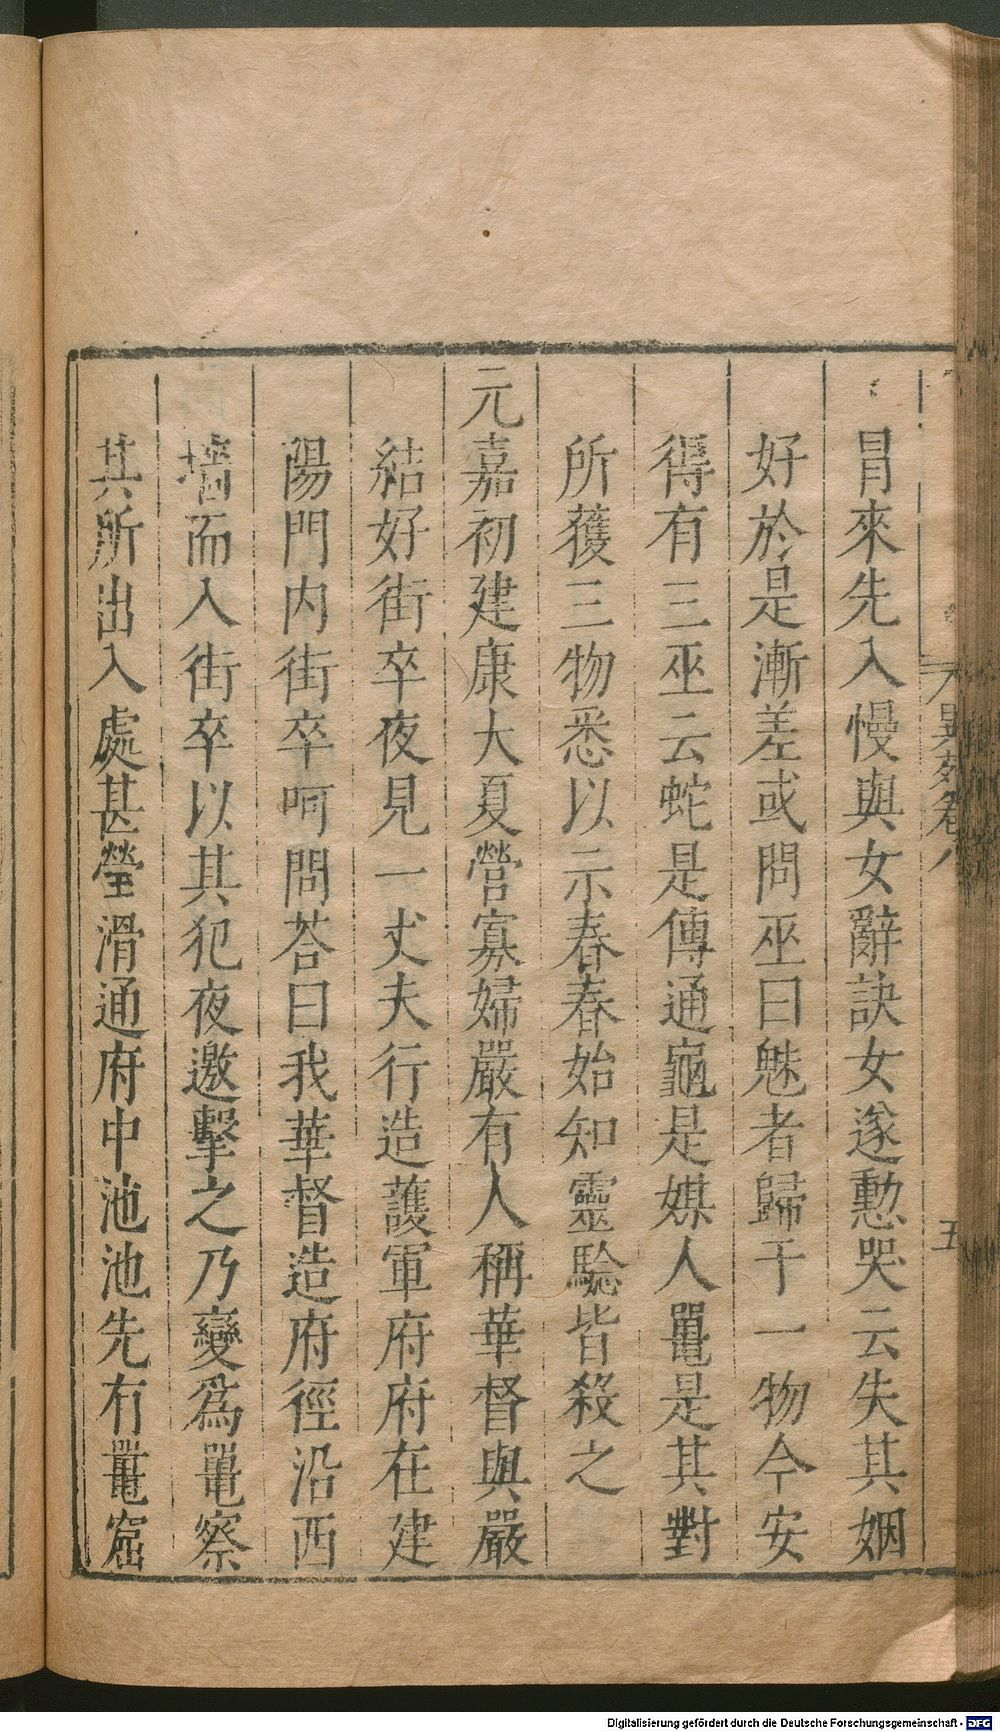 異苑卷八
五
冐來先入慢與女辭訣女遂慟哭云失其姻
好於是漸差或問巫曰魅者歸于一物今安
得有三巫云蛇是傳通龜是媒人鼉是其對
所獲三物悉以示春春始知靈驗皆殺之
元嘉初建康大夏營寡婦嚴有人稱華督與嚴
結好街卒夜見一丈夫行造護軍府府在建
陽門内街卒呵問荅曰我華督造府徑沿西
墻而入街卒以其犯夜邀擊之乃變爲鼉察
其所出入處甚瑩滑通府中池池先有鼉窟
Digitalisierung gefördert durch die Deutsche Forschungsgemeinschaft - DFG